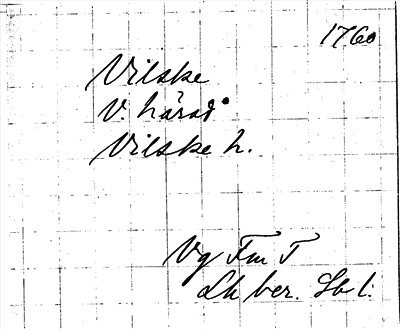 1760
Vilske
V. härad
Vilske h.
Vg Fm T
Lh ber. Sb l.